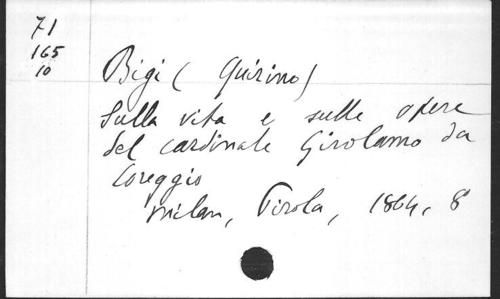 71
165
10
Bigi ( Quirino)
Sulla vita e sulle opere
del cardinale Girolamo da
Coreggio
Milan, Pirola, 1864, 8°